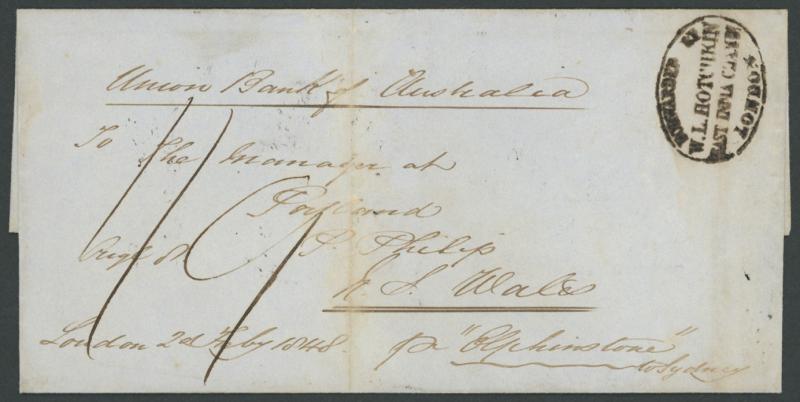 Union Bank of Australia
To the Manager at
Portland
Origl
P. Philip
N. S. Wales
London 2d Feby 1848
pr "Elphinstone"
to Sydney
FORWARDED BY
W.L. HOTCHKIN
EAST INDIA CHAMB
LONDON